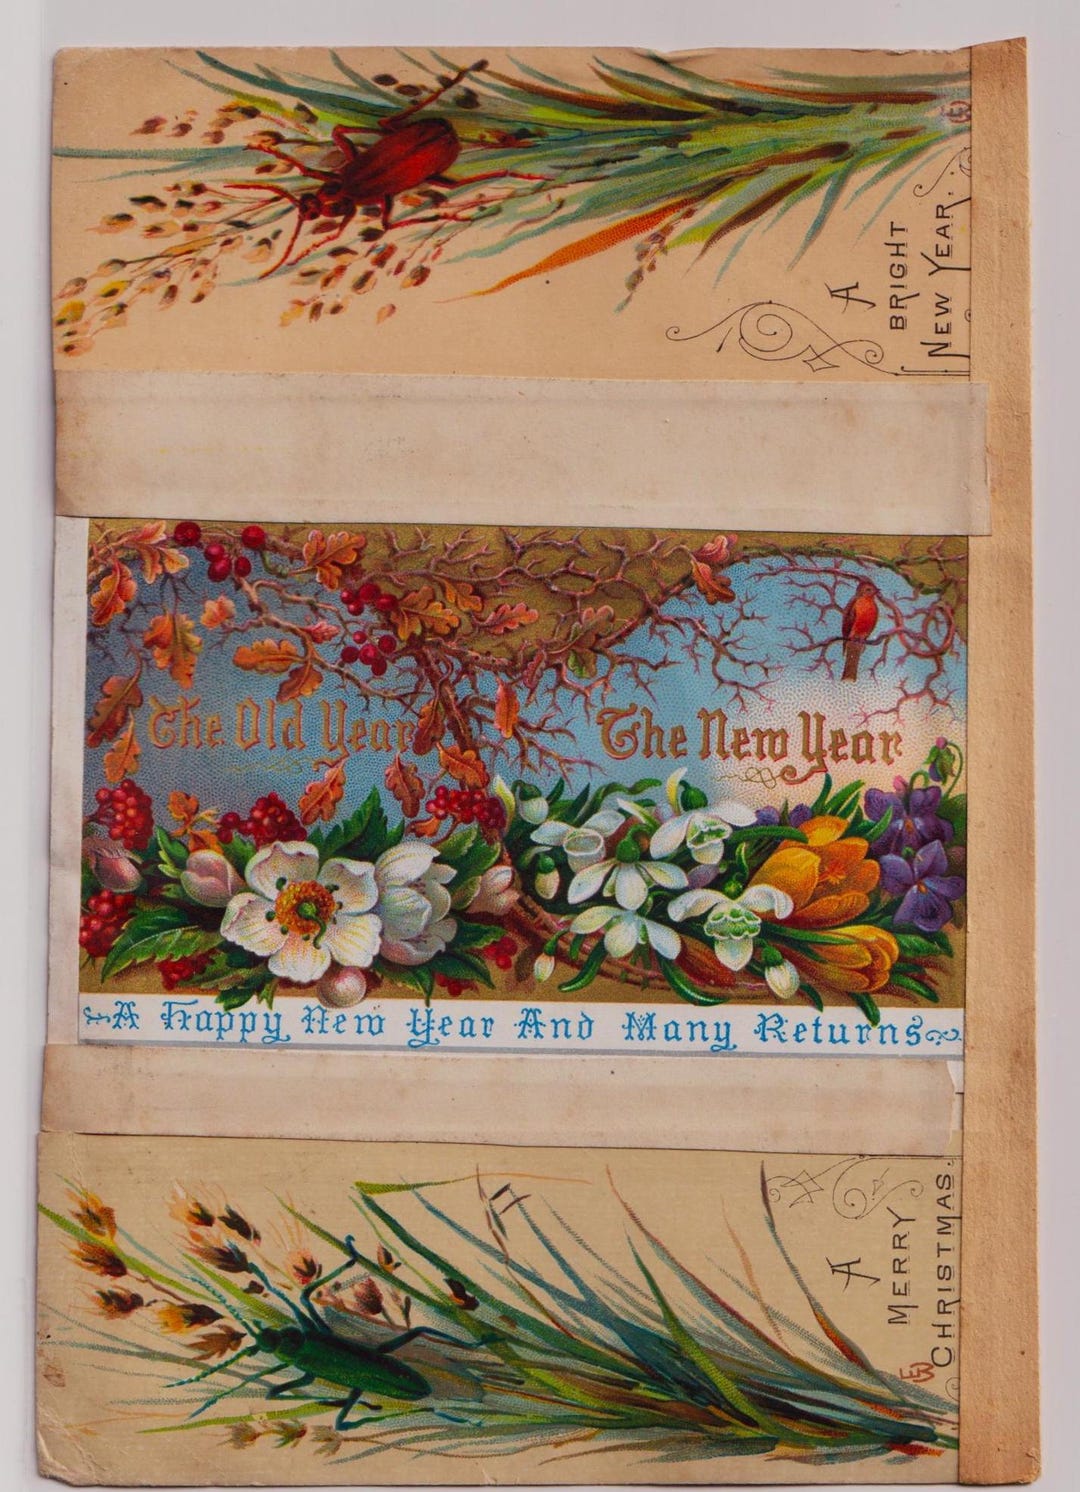 A
BRIGHT
NEW YEAR.
The Old Year
The New Year
A Happy New Year And Many Returns
A
MERRY
CHRISTMAS.